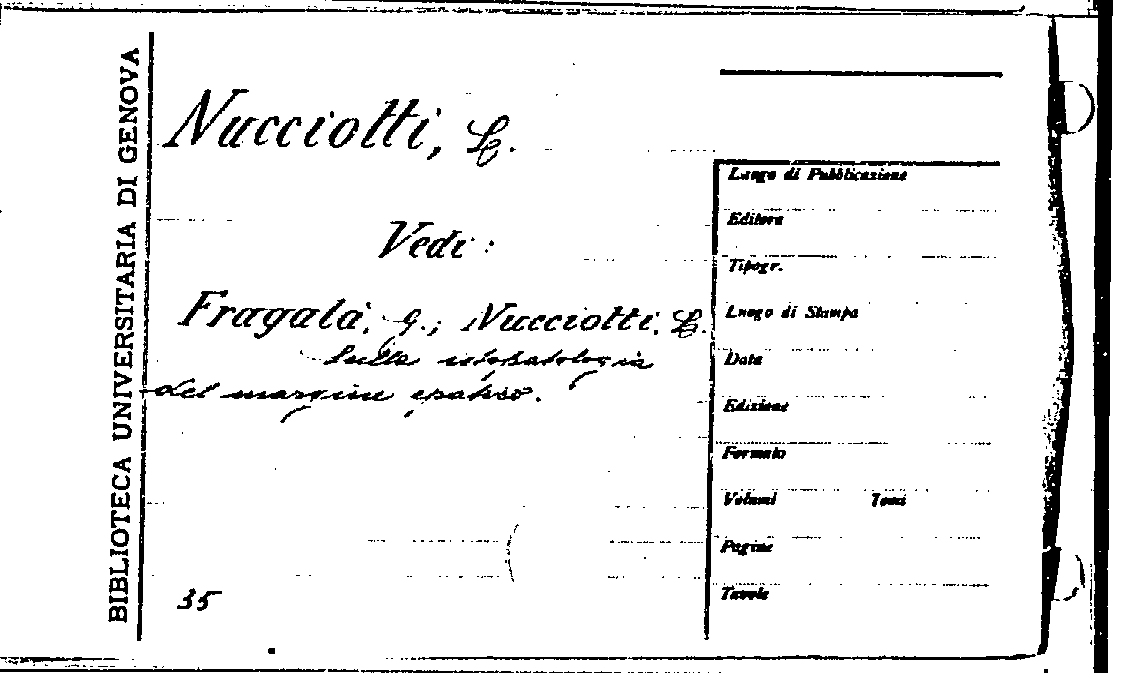 BIBLIOTECA UNIVERSITARIA DI GENOVA
Nucciotti, L.
Vedi:
Fragalà, G.; Nucciotti, L.
Sulla istopatologia
del margine epatico.
35
Luogo di Pubblicazione
Editore
Tipogr.
Luogo di Stampa
Data
Edizione
Formato
Volumi Tomi
Pagine
Tavole